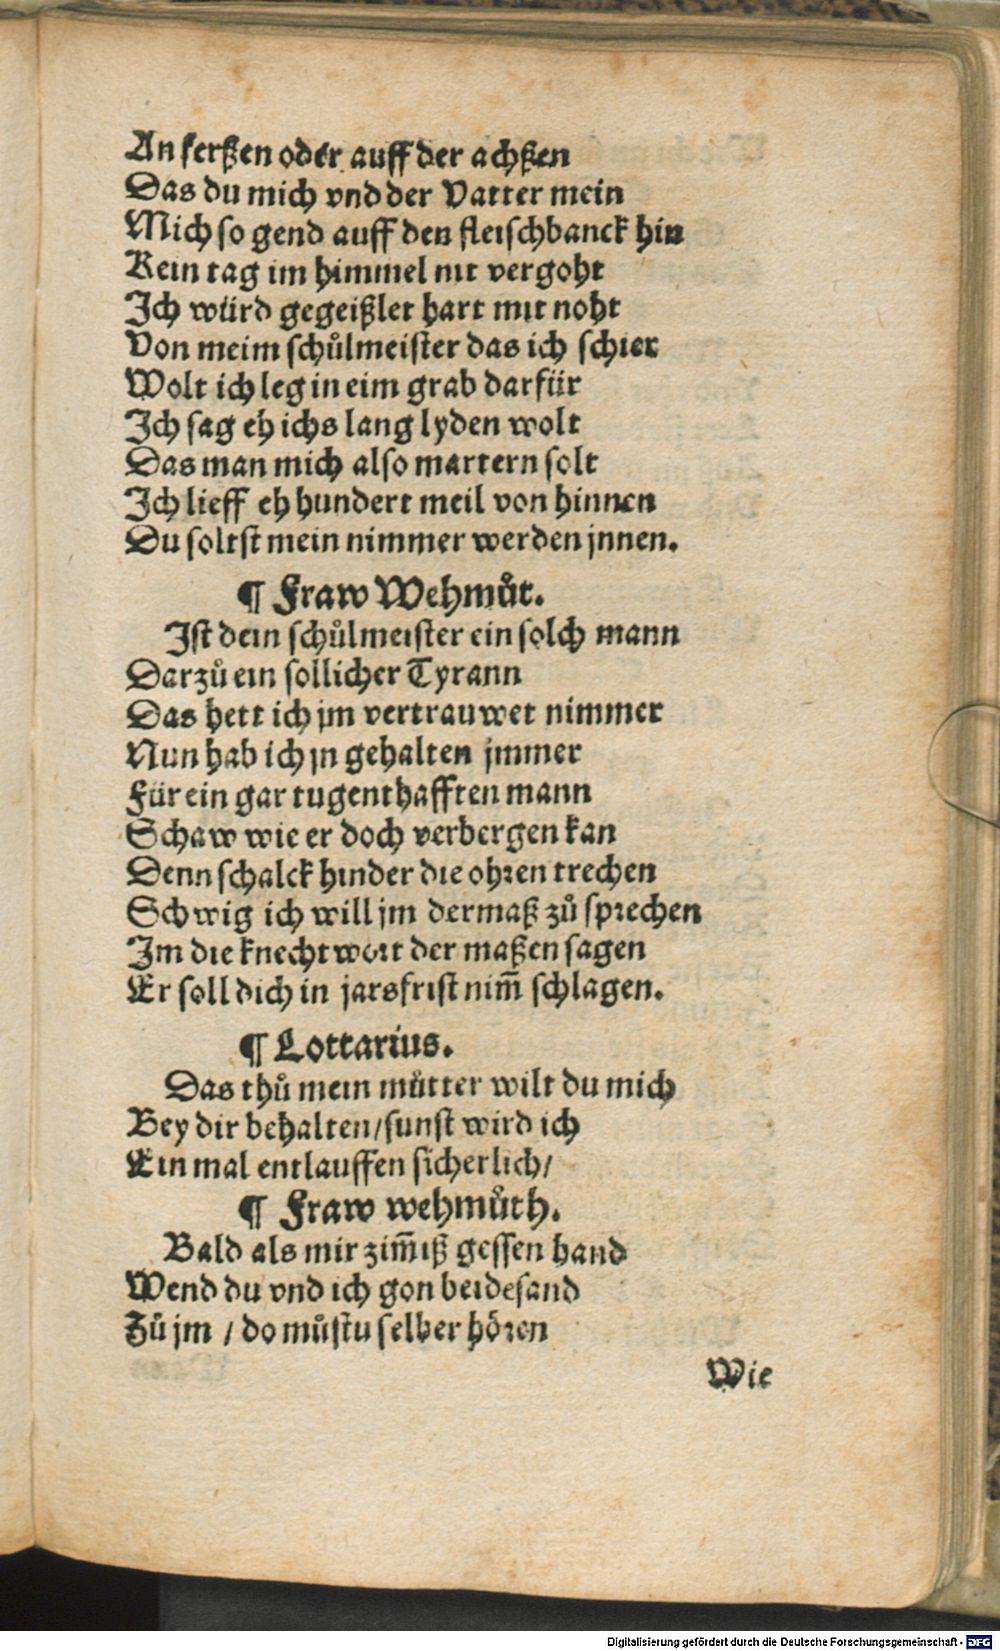 An ferßen oder auff der achßen
Das du mich vnd der Vatter mein
Mich so gend auff den fleischbanck hin
Kein tag im himmel nit vergoht
Ich würd gegeißlet hart mit noht
Von meim schůlmeister das ich schier
Wolt ich leg in eim grab darfür
Ich sag eh ichs lang lyden wolt
Das man mich also martern solt
Ich lieff eh hundert meil von hinnen
Du soltst mein nimmer werden jnnen.
¶ Fraw Wehmůt.
Ist dein schůlmeister ein solch mann
Darzů ein sollicher Tyrann
Das hett ich jm vertrauwet nimmer
Nun hab ich jn gehalten jmmer
Für ein gar tugenthafften mann
Schaw wie er doch verbergen kan
Denn schalck hinder die ohren trechen
Schwig ich will jm dermaß zů sprechen
Im die knechtwort der maßen sagen
Er soll dich in jarsfrist nim̃ schlagen.
¶ Lottarius.
Das thů mein můtter wilt du mich
Bey dir behalten/sunst wird ich
Ein mal entlauffen sicherlich/
¶ Fraw wehmůth.
Bald als mir zim̃iß gessen hand
Wend du vnd ich gon beidesand
Zů jm / do můstu selber hören
Wie
Digitalisierung gefördert durch die Deutsche Forschungsgemeinschaft - DFG